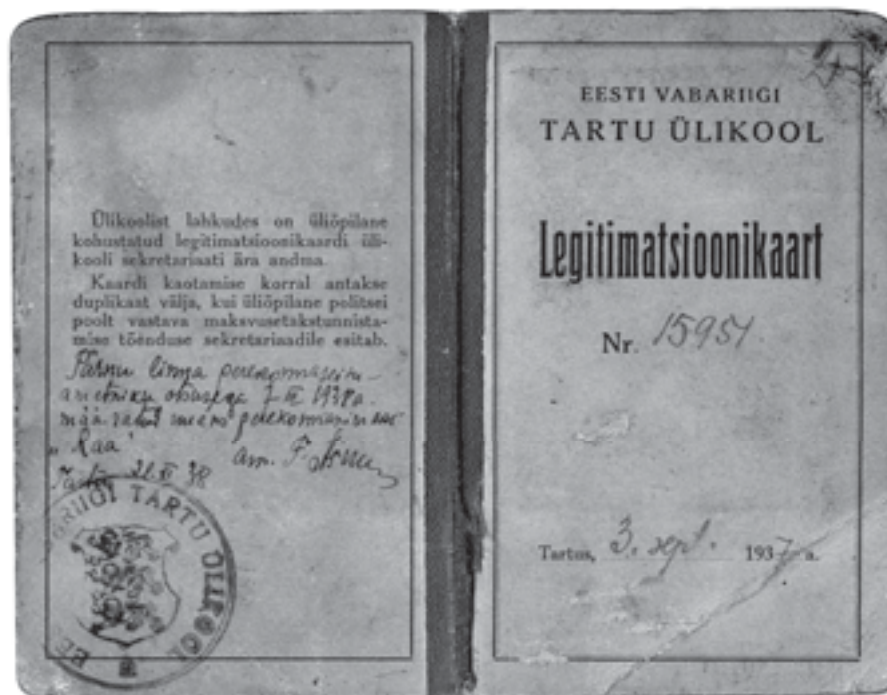 Ülikoolist lahkudes on üliõpilane
kohustatud legitimatsioonikaardi üli-
kooli sekretariaati ära andma.
Kaardi kaotamise korral antakse
duplikaat välja, kui üliõpilane politsei
poolt vastava maksvusetakstunnista-
mise tõenduse sekretariaadile esitab.
Pärnu linna perekonnaseisu-
ametniku otsusega 7 III 1938 a.
määratud perekonnanimi
"Raa"
am. F.
Tartu 21. 38
RIIGI TARTU ÜLIKOOL EE
EESTI VABARIIGI
TARTU ÜLIKOOL
Legitimatsioonikaart
Nr. 15951
Tartus, 3. sept. 1937 a.